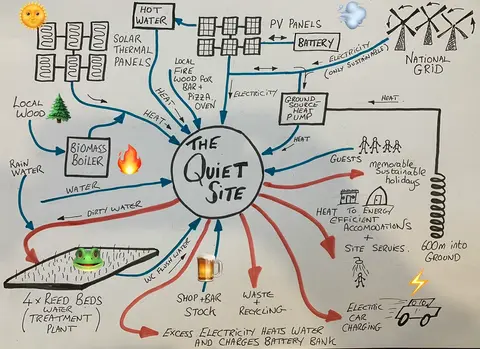 HOT
WATER
PV PANELS
SOLAR
THERMAL
PANELS
BATTERY
LOCAL
FIRE
WOOD FOR
BAR +
PIZZA
OVEN
ELECTRICITY
(ONLY SUSTAINABLE)
NATIONAL
GRID
HEAT
HEAT
ELECTRICITY
GROUND
SOURCE
HEAT
PUMP
HEAT
LOCAL
WOOD
BIOMASS
BOILER
HEAT
THE
QUIET
SITE
GUESTS
memorable
sustainable
holidays
RAIN
WATER
WATER
DIRTY WATER
HEAT TO ENERGY
EFFICIENT
ACCOMODATIONS
+
SITE SERVIES.
600m INTO
GROUND
W.C. FLUSH WATER
4 x REED BEDS
(WATER
TREATMENT
PLANT)
SHOP + BAR
STOCK
WASTE
+
RECYCLING
ELECTRIC
CAR
CHARGING
EXCESS ELECTRICITY HEATS WATER
AND CHARGES BATTERY BANK